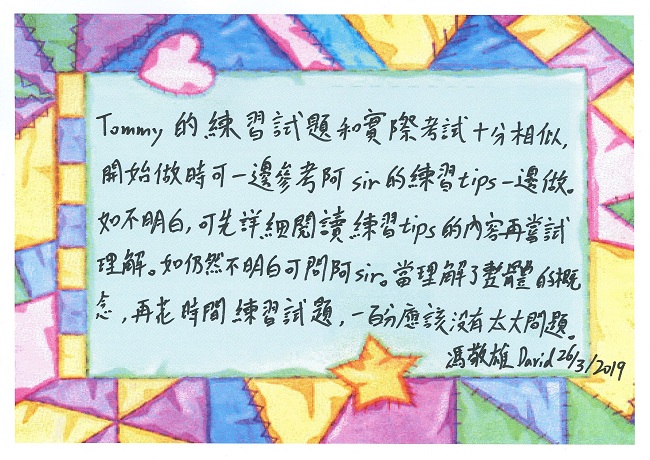 Tommy 的練習試題和實際考試十分相似,
開始做時可一邊參考阿 sir 的練習tips一邊做。
如不明白,可先詳細閱讀練習tips的內容再嘗試
理解。如仍然不明白可問阿sir。當理解了整體的概
念,再花時間練習試題,一百分應該沒有太大問題。
馮敬雄 David 26/3/2019